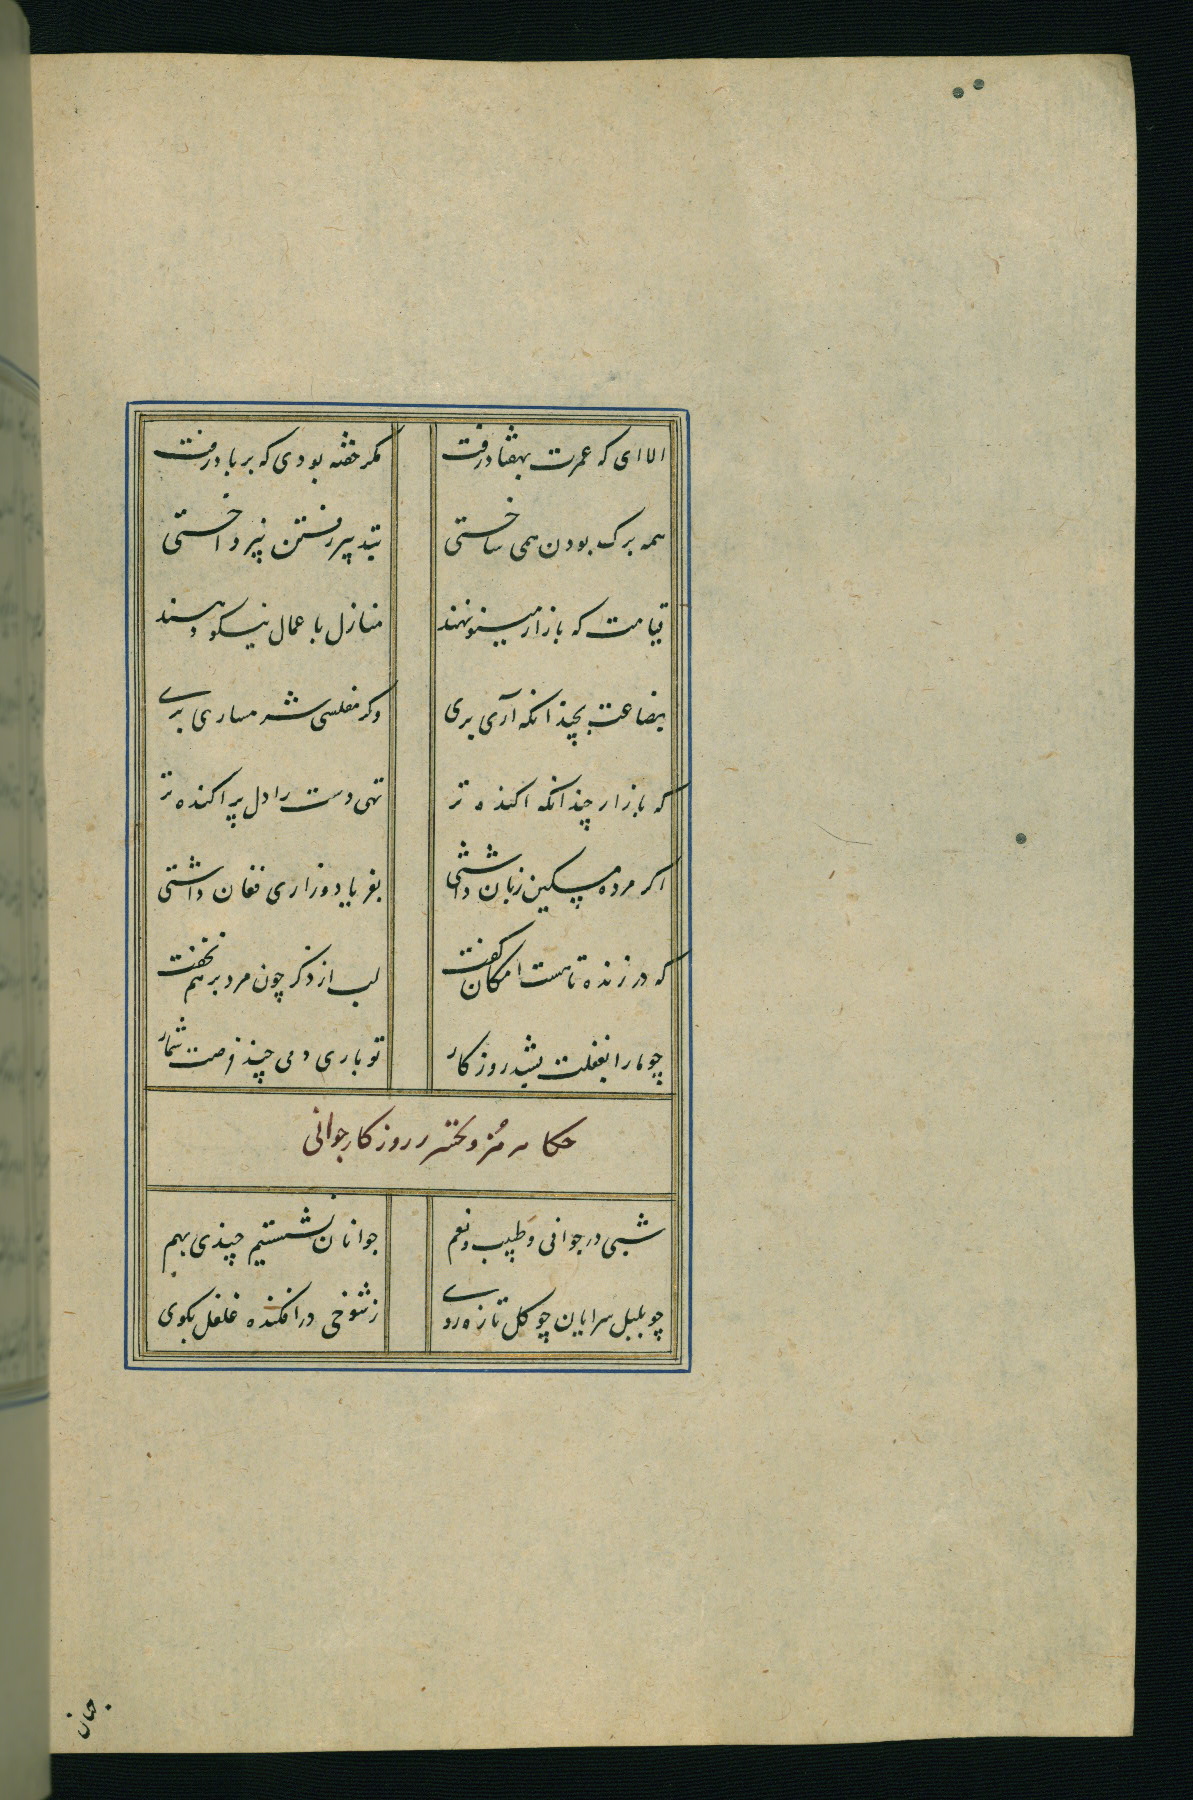 الا ای که عمرت بهفتاد رفت مکر خفته بودی که بر باد رفت
همه برک بودن همی ساختی بتدبیر رفتن نپرداختی
قیامت که بازار مینو نهند منازل باعمال نیکو دهند
بضاعت بچندانکه آری بری وکر مفلسی شرمساری بری
که بازار چندانکه اکنده تر تهی دست را دل پراکنده تر
اکر مرده مسکین زبان داشتی بفریاد و زاری فغان داشتی
که در زنده تا هست امکان کفت لب از ذکر چون مرد بر هم نخفت
چو ما را بغفلت بشد روزکار تو باری دمی چند فرصت شمار
روزکار جوانی
شبی در جوانی و طیب و نعم جوانان نشستیم چندی بهم
چو بلبل سرایان چو کل تازه روی ز شوخی در افکنده غلغل بکوی
جهان